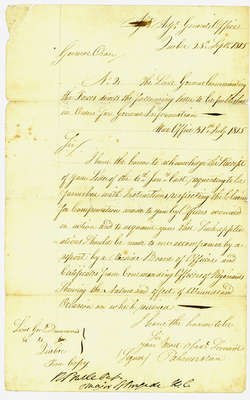 Adjt. General's Office
Quebec 23d Septr. 1815
General Order
N. 2 The Lieut. General Commanding
the Forces directs the following letter to be published
in Orders for General Information
War Office 31st July 1815
Sir,
I have the honor to acknowledge the receipt
of your Letter of the 6th June last, requesting to be
furnished with Instructions respecting the Claims
for Compensation made to you by Officers wounded
in action and to acquaint you that Such applica-
tions Should be made to me accompanied by a
report by a Medical Board of Officers and
Certificates from Commanding Officers of Regiments
Shewing the nature and effect of Wounds and
Occasion on which received
I have the honor to be
Sir
your most obedt. Servant
(Signed) Palmerston
Lieut. Genl. Drummond
&c &c &c
Quebec
True Copy
Major of Brigade